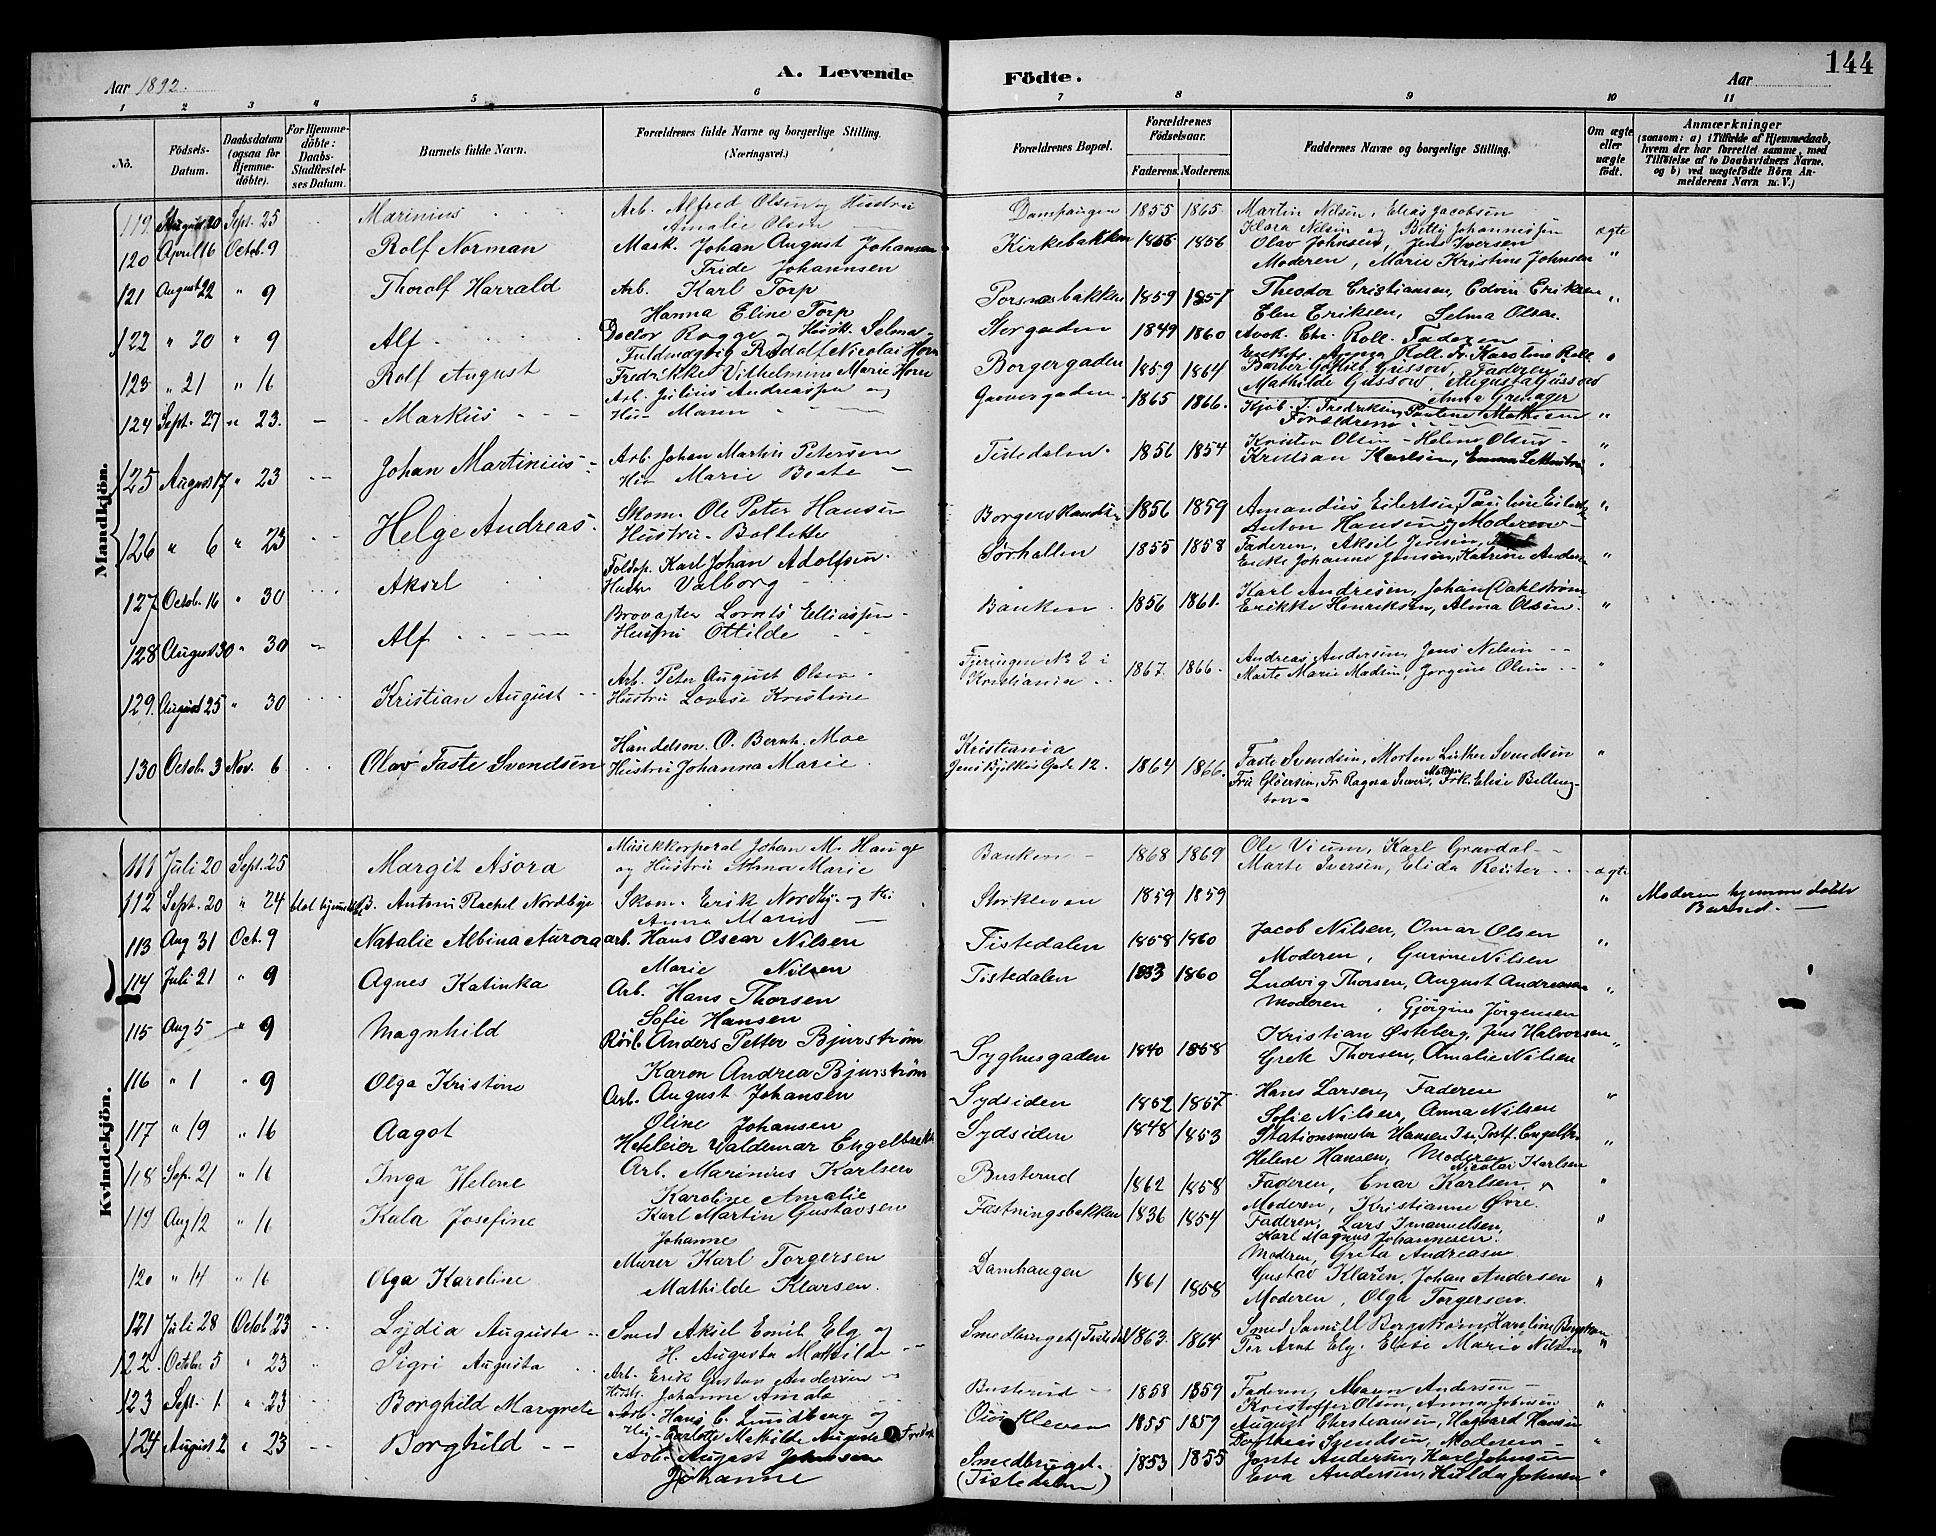 144
Aar 1892.
A. Levende
Födte.
Aar
1 2 3 4 5 6 7 8 9 10 11
Nö.
Födsels-
Datum.
Daabsdatum
(ogsaa for
Hjemme-
döbte).
For Hjemme-
döbte:
Daabs-
Stadfæstel-
ses Datum.
Barnets fulde Navn.
Forældrenes fulde Navne og borgerlige Stilling.
(Næringsvei.)
Forældrenes Bopæl.
Forældrenes
Födselsaar.
Faderens. Moderens.
Faddernes Navne og borgerlige Stilling.
Om ægte
eller
uægte
födt.
Anmærkninger
(saasom: a) i Tilfælde af Hjemmedaab,
hvem der har forrettet samme, med
Tilföielse af to Daabsvidners Navne.
og b) ved uægtefödte Börn An-
melderens Navn m. V.)
Mandkjön.
119. August 20 Sept. 25 Marinius Arb. Alfred Olsen og Hustru 1855 1865 Martin Nilsen, Elias Jacobsen
Amalie Olsen Klara Nilsen og Betty Johannessen ægte
120 April 16 Octob. 9 Rolf Norman Mask. Johan August Johansen Kirkebakken 1856 1856 Olav Johnsen, Jens Iversen
Fride Johannsen Moderen, Marie Kristine Johnsen "
121 August 22 " 9 Thorolf Harrald Arb. Karl Torp Porsnæsbakken 1859 1857 Theodor Cristiansen, Edvin Eriksen "
Hanna Eline Torp Elen Eriksen, Selma Olsen
122 " 20 " 9 Alf Doctor Rogge og Husk. Selma Storgaden 1849 1860 Avok. Chr. Roll. Faderen
Fuldmægtig Rudolf Nicolai Horn Enkefr. Roll. Fr. Karstine Roll "
123 " 21 " 16 Rolf August Fredrikke Vilhelmine Marie Horn Borgergaden 1859 1864 Barber Gussow, Faderen
Mathilde Gussow, Augusta Gussow
124 Sept. 27 " 23. Markus Arb. Julius Andreassen og 1865 1866.
Hus Maren Forældrene "
125 August 17 " 23 Johan Martinius Arb. Johan Martin Petersen Tistedalen 1856 1854 Kristen Olsen - Helene Olsen "
Hus Marie Beate Kristian Karlsen,
126 " 6 " 23 Helge Andreas Skom. Ole Peter Hansen 1856 1859 Amandus Eilertsen, Pauline "
Hustru Bollette Anton Hansen, Moderen
127 Octob. 16 " 30 Aksel Karl Johan Adolfsen Sørhallen 1855 1858 Faderen, Aksel Jensen,
Valborg Johanne Jensen, Katrine "
128 August 30 " 30 Alf Lornts Elliassen Banken 1856 1861. Karl Andresen, Johan Dahlstrøm
Hustru Ottilde Henriksen, Alma Olsen "
129. August 25 " 30 Kristian August Arb. Peter August Olsen No 2 i 1867 1866. Andreas Andersen, Jens Nelsen
Hustru Lovise Kristine Kristiania Marte Marie Madsen, Jorgine Olsen "
130 Octob. 3 Nov. 6 Olav Faste Svendsen Handelsm. O. Bernh. Moe Kristiania 1864 1866. Faste Svendsen, Morten Svendsen "
Hustru Johanna Marie Jens Bjelkes Gade 12. Fru Gløersen, Fr. Ragna , Frk. Elise Billing-
ton
Kvindekjön.
111 Juli 20 Sept. 25 Margit Asora Musikkorporal Johan M. Hauge Banken 1868 1869 Ole Vium, Karl Gravdal
og Hustru Marie Marte Iversen, Elida Reuter ægte
112 Sept. 20 " 24 blot hjemmedøbt B. Antoni Rachel Nordbye Skom. Erik Nordby og H. Storkleven 1859 1859 " Moderen hjemmedøbte
Anna Marie Barnet.
113 Aug 31 Oct. 9 Natalie Albina Aurora arb. Hans Oscar Nilsen Tistedalen 1858 1860 Jacob Nilsen, Omar Olsen "
Marie Nilsen Moderen, Gurine Nilsen
114 Juli 21 " 9 Agnes Katinka Arb. Hans Thorsen Tistedalen 1853 1860 Ludvig Thorsen, August Andreasen "
Sofie Hansen Moderen, Gjørgine Jørgensen
115 Aug 5 " 9 Magnhild Anders Petter Bjurstrøm Syghusgaden 1840 1858 Kristian Østeberg, Jens Halvorsen "
Karen Andrea Bjurstrøm Grete Thorsen, Amalie Nilsen
116 " 1 " 9 Olga Kristine Arb. August Johansen Sydsiden 1852 1857 Hans Larsen, Faderen "
Oline Johansen Sofie Nilsen, Anna Nilsen
117 " 19 " 16 Aagot Hoteleier Valdemar Engelbrekt Sydsiden 1848 1853 Stationsmester Hansen "
Helene Hansen, Moderen
118 Sep. 21 " 16 Inga Helene Arb. Marinius Karlsen Busterud 1862 1858 Faderen, Enar Karlsen, Nicolai Karlsen "
Karoline Amalie Moderen, Kristianne Øvre.
119 Aug 12 " 16 Kala Josefine Karl Martin Gustavsen Fæstningsbakken 1836 1854 Faderen, Lars Imanuelsen "
Johanne Karl Magnus Johannesen
Moderen, Greta Andreasen
120 " 14 " 16 Olga Karoline Murer Karl Torgersen Damhaugen 1861 1858 Gustav Klaren, Johan Andersen "
Mathilde Klarsen. Moderen, Olga Torgersen.
121 Juli 28 Octob. 23 Lydia Augusta Smed Aksel Emil Elg og Smedbruget (Tistedal 1863. 1864 Smed Samuel Bergstrøm, Karoline Bergstrøm
H. Augusta Mathilde Per Arnt Elg. Elise Marie Nilsen "
122 October 5 " 23 Sigri Augusta Arb. Erik Gustav Andersen Busterud 1858 1859 Faderen, Maren Andersen
Johanne Amala Kristoffer Olsen, Anna Johnsen "
123 Sept. 1 " 23 Borghild Margrete Arb. Hans C. Lundberg og 1855 1859 August Christiansen, Hagvard Hansen
Mathilde Svendsen, Moderen "
124 August 2 " 23 Borghild Arb. August Johnsen Smedbruget. 1853 1855 Andersen, Karl Johnsen
Johanne (Tistedalen) Eva Andersen, Hulda Johnsen "